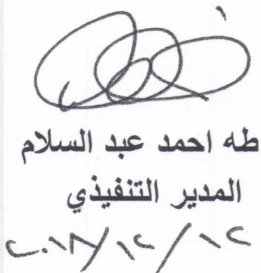 طه احمد عبد السلام
المدير التنفيذي
٢٠١٧/١٢/١٢